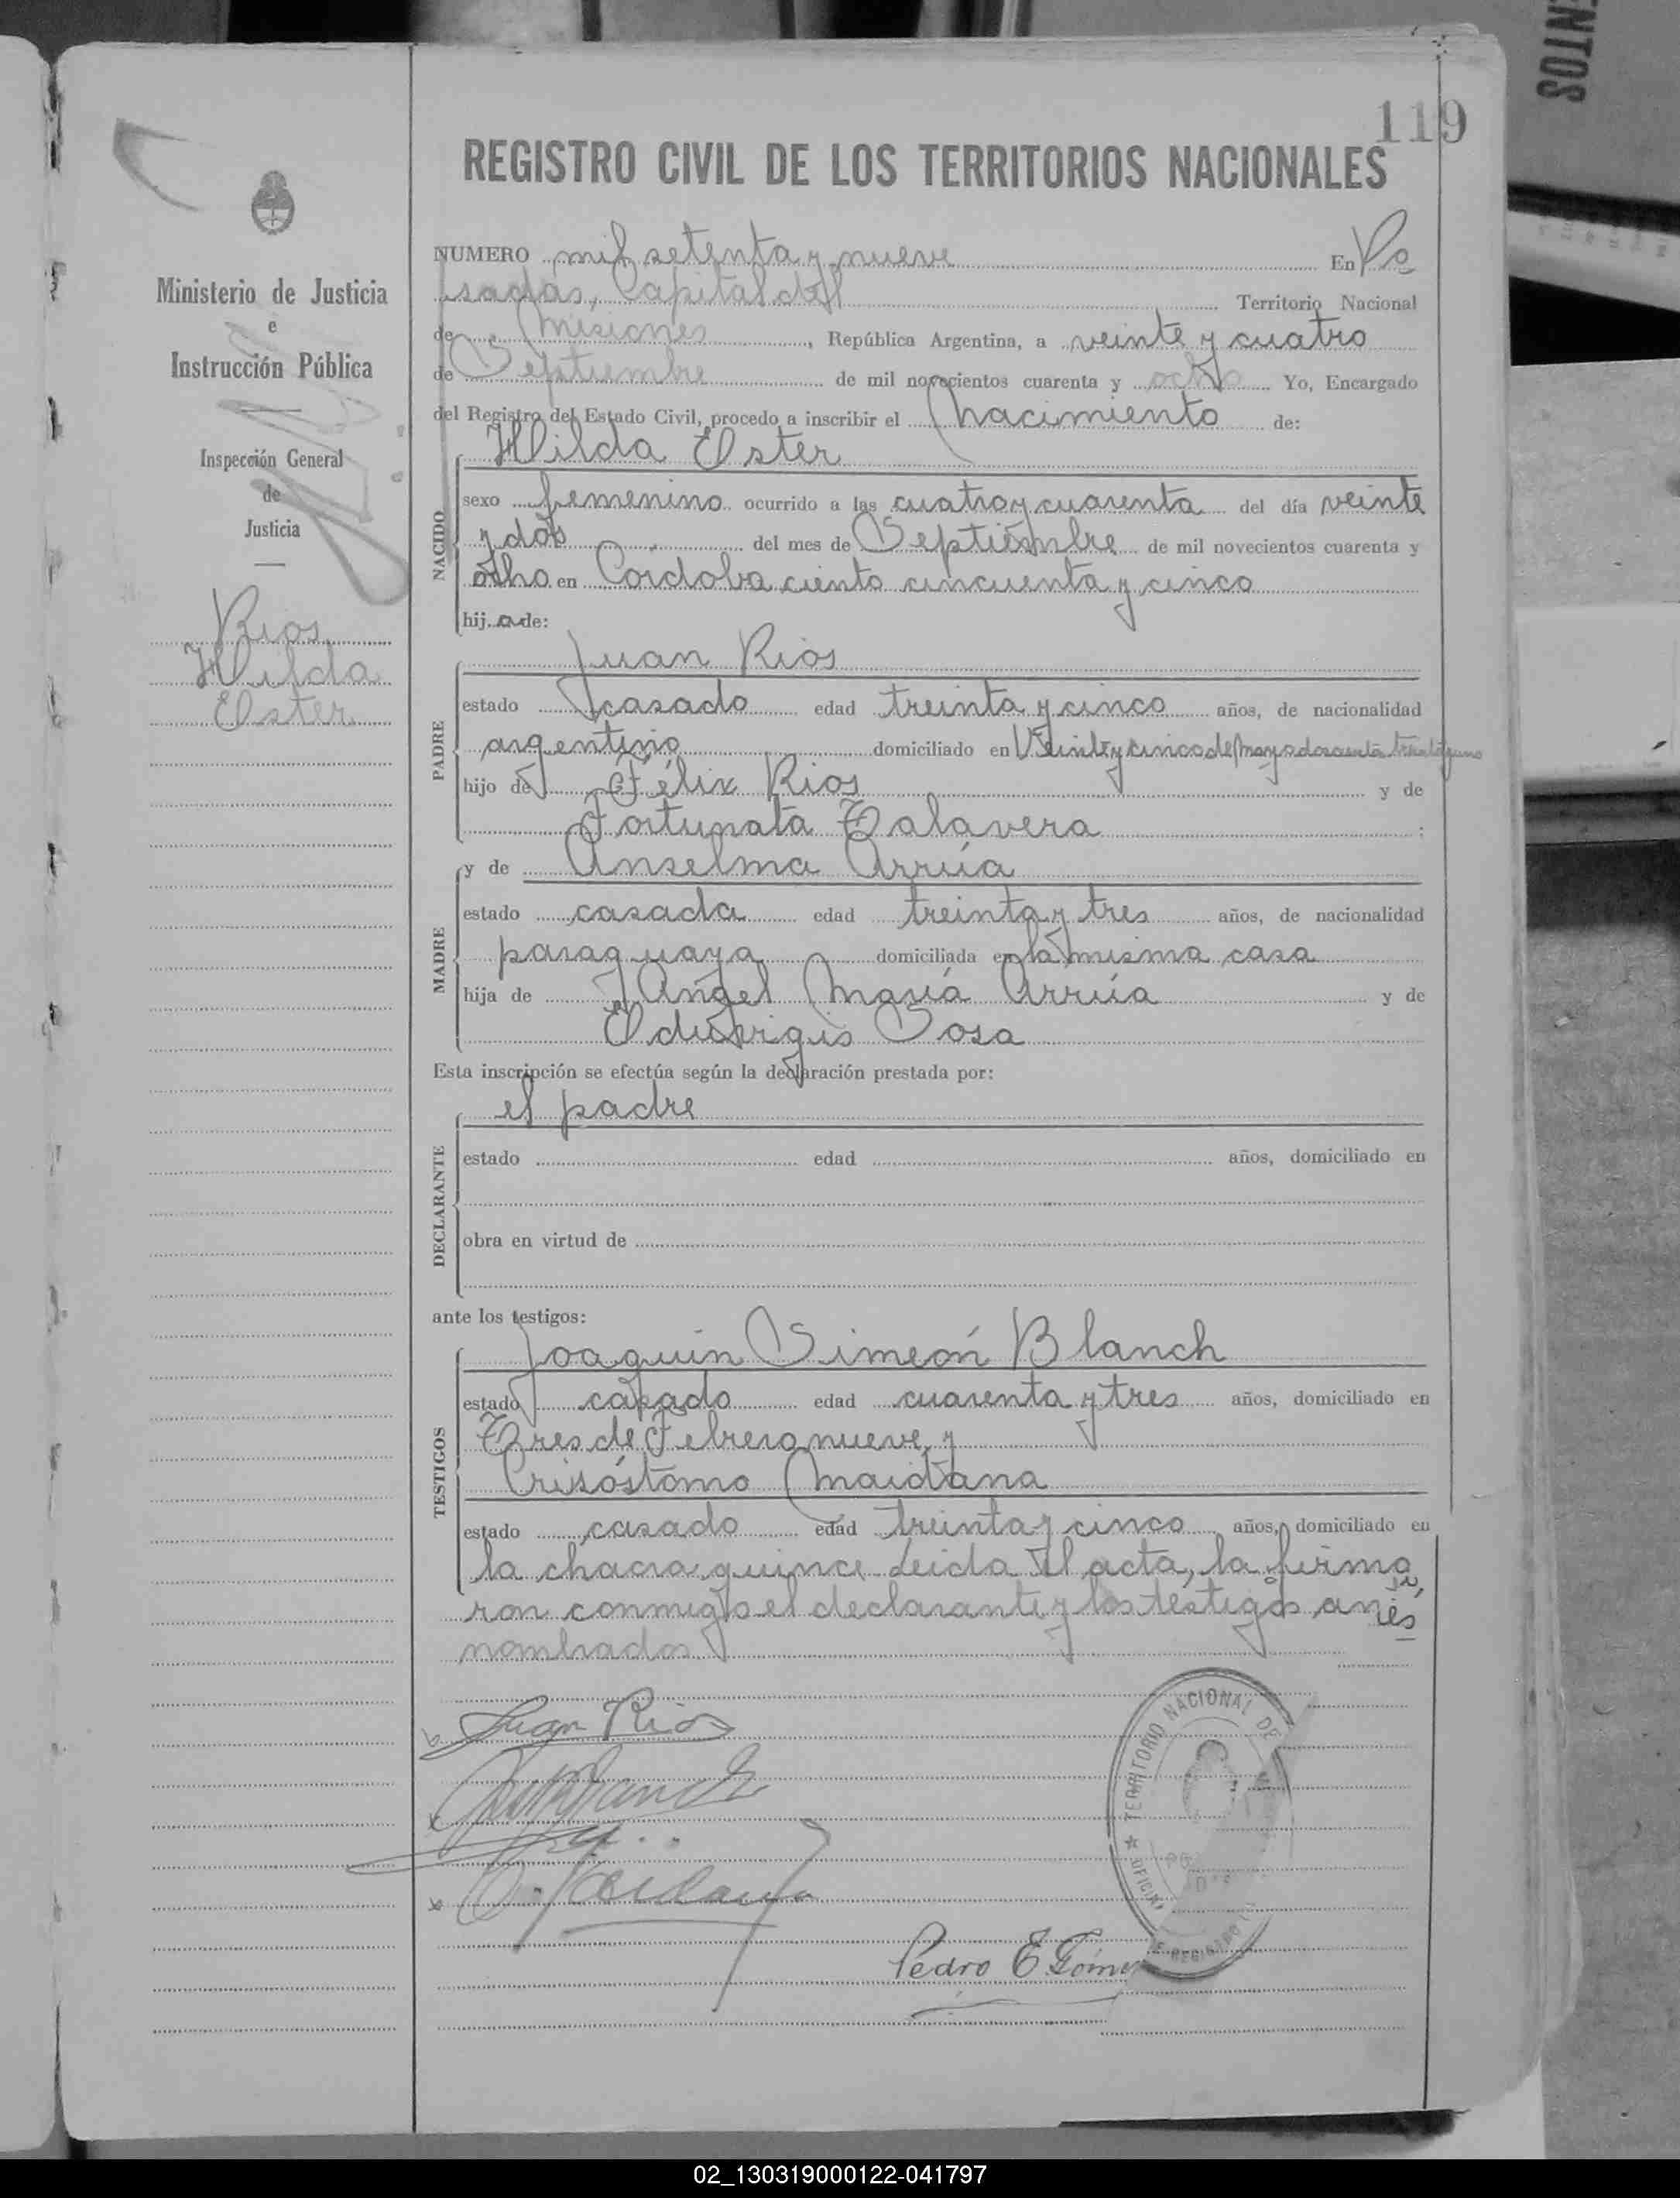 ENTOS
119
REGISTRO CIVIL DE LOS TERRITORIOS NACIONALES
Ministerio de Justicia
e
Instrucción Pública
Inspección General
de
Justicia
Rios
Hilda
Ester
NUMERO mil setenta y nueve En Po
sadas, Capital del Territorio Nacional
de Misiones, República Argentina, a veinte y cuatro
de Septiembre de mil novecientos cuarenta y ocho Yo, Encargado
del Registro del Estado Civil, procedo a inscribir el nacimiento de:
Hilda Ester
NACIDO
sexo femenino ocurrido a las cuatro y cuarenta del día veinte
y dos del mes de Septiembre de mil novecientos cuarenta y
ocho en Córdoba ciento cincuenta y cinco
hij a de:
Juan Rios
PADRE
estado casado edad treinta y cinco años, de nacionalidad
argentino domiciliado en Veinte y cinco de Mayo doscientos treinta y uno
hijo de Félix Rios y de
Fortunata Talavera;
y de Anselma Arrúa
MADRE
estado casada edad treinta y tres años, de nacionalidad
paraguaya domiciliada en la misma casa
hija de Angel María Arrúa y de
Eduvigis Sosa
Esta inscripción se efectúa según la declaración prestada por:
el padre
DECLARANTE
estado edad años, domiciliado en
obra en virtud de
ante los testigos:
Joaquin Simeón Blanch
TESTIGOS
estado casado edad cuarenta y tres años, domiciliado en
Tres de Febrero nueve y
Crisóstomo Maidana
estado casado edad treinta y cinco años, domiciliado en
la chacra quince. Leida el acta, la firma
ron conmigo el declarante y los testigos
nombrados
Juan Rios
Maidana
Pedro E. Gómez
TERRITORIO NACIONAL DE
OFICINA DE REGISTRO
02_130319000122-041797